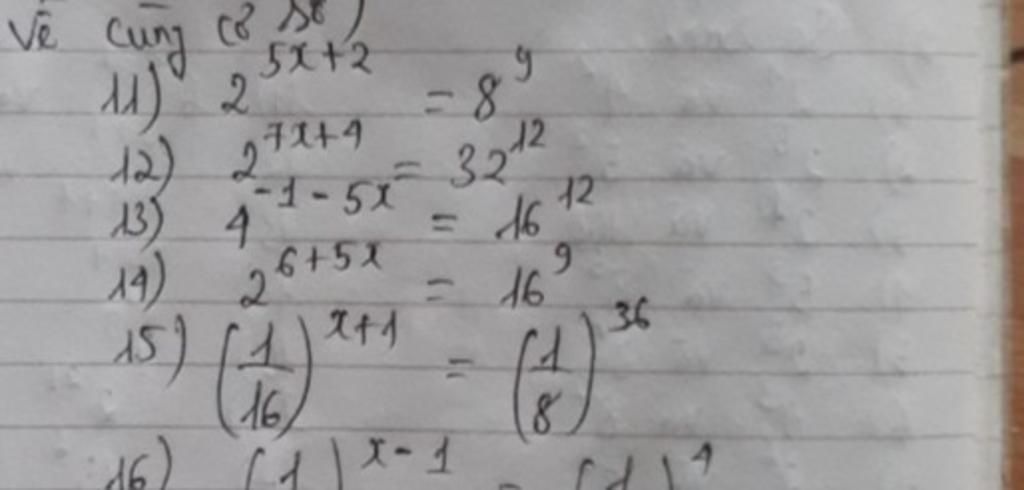 Về cùng cơ số)
11) 2^{5x+2} = 8^{9}
12) 2^{7x+4} = 32^{12}
13) 4^{-1-5x} = 16^{12}
14) 2^{6+5x} = 16^{9}
15) (1/16)^{x+1} = (1/8)^{36}
16) (1)^{x-1} = (1)^{4}